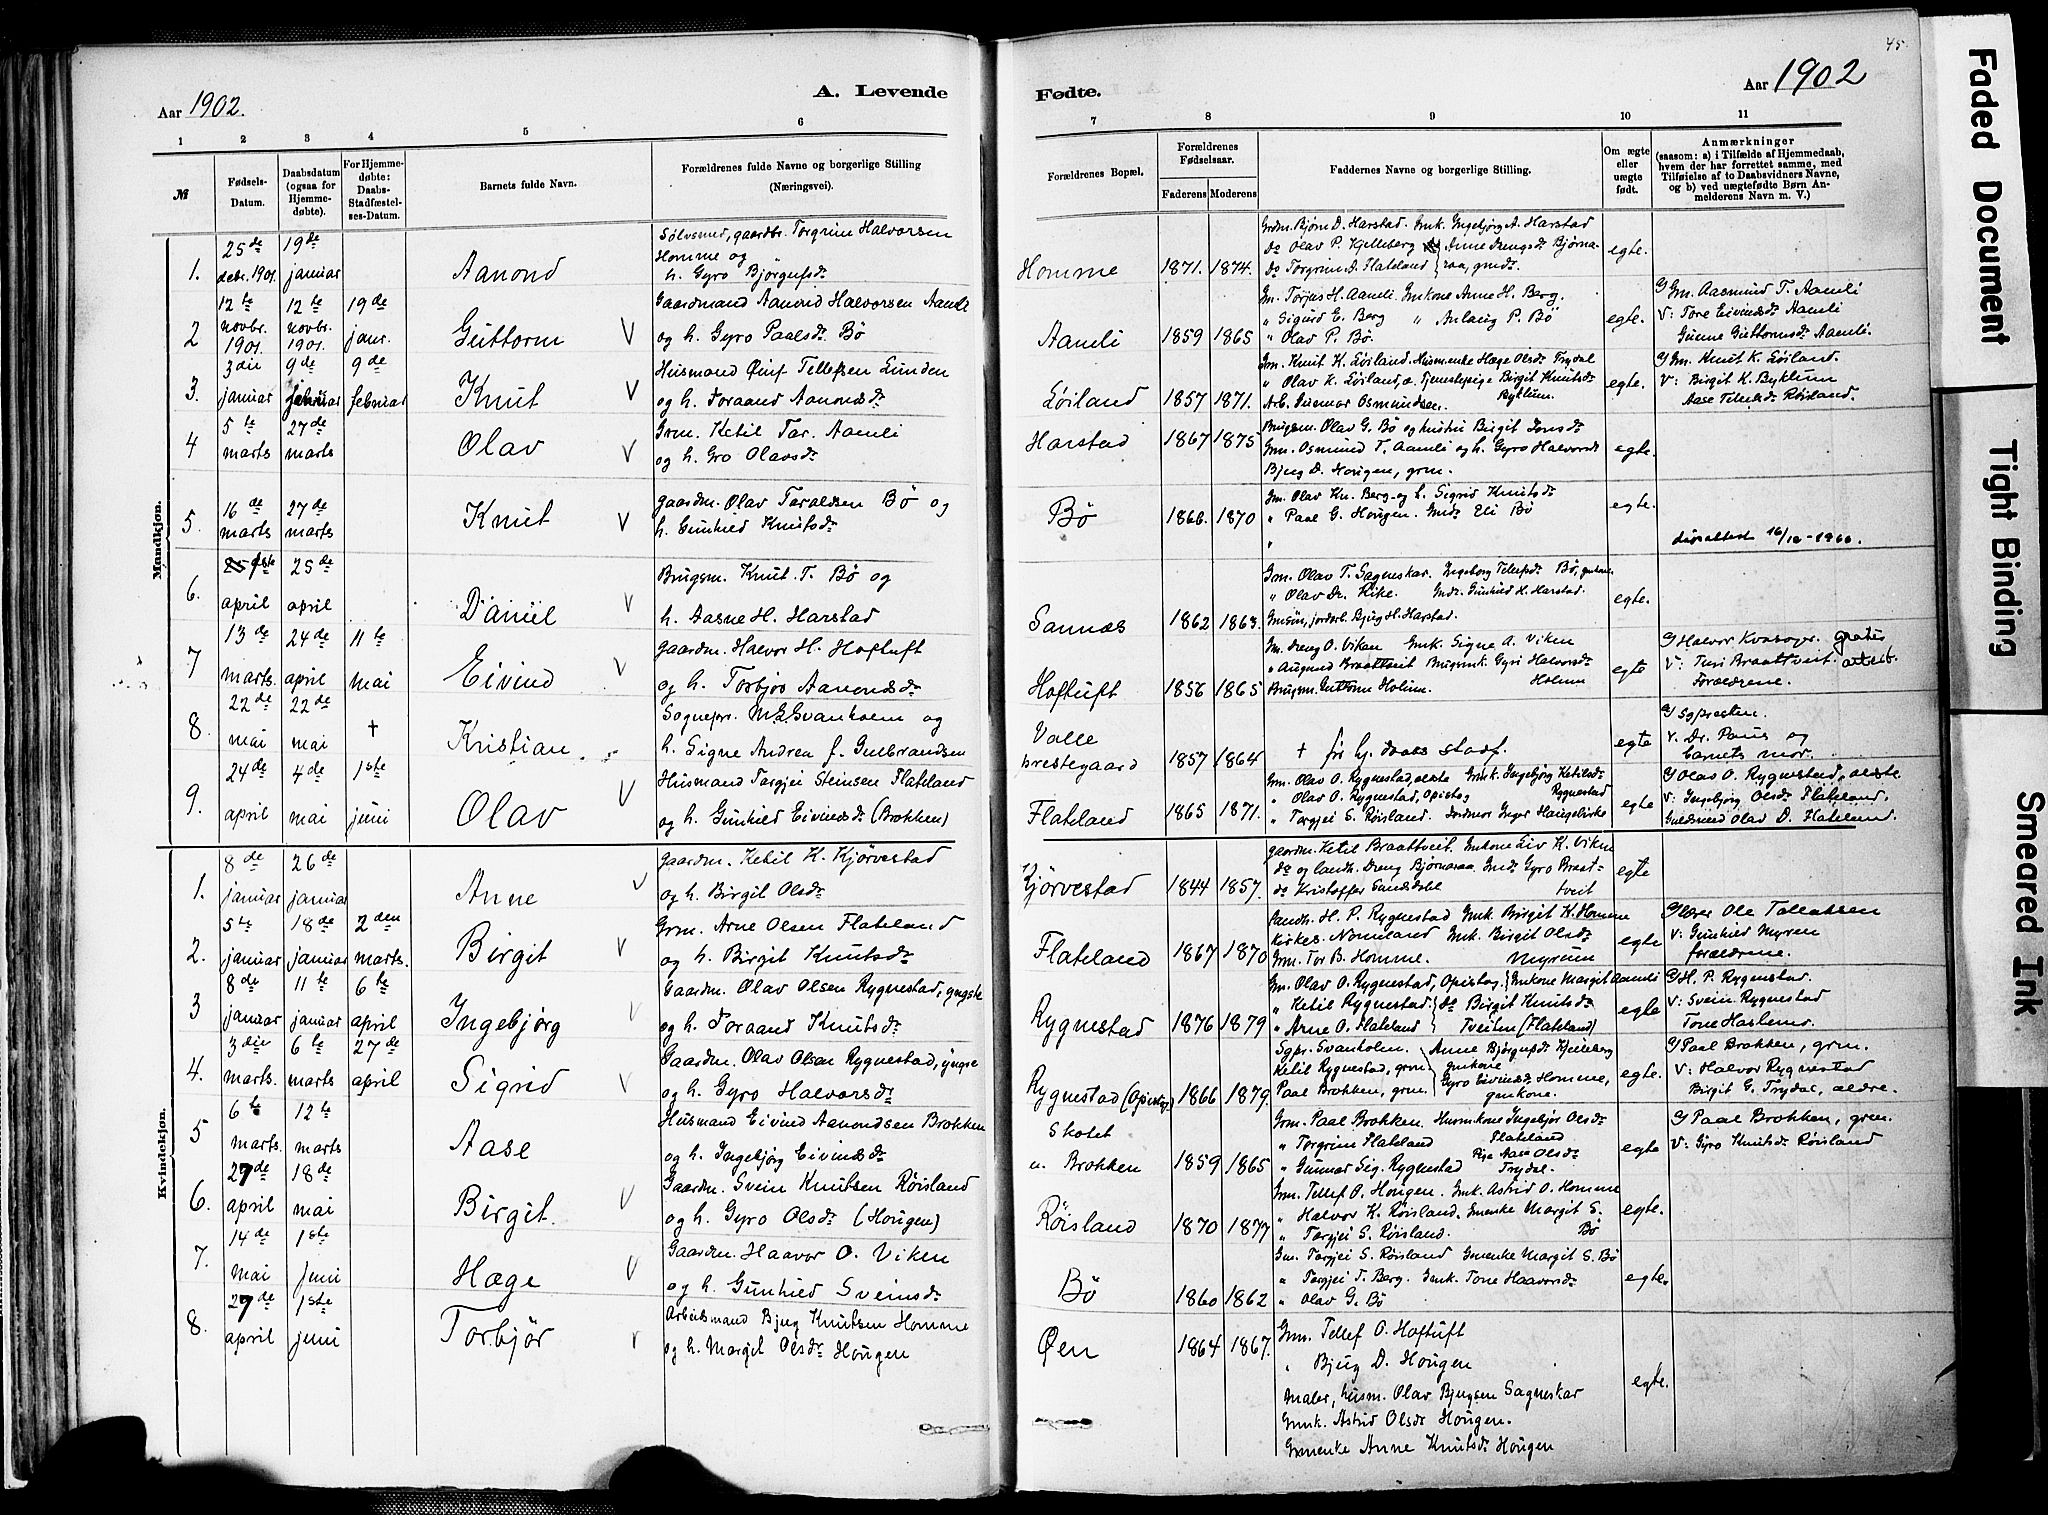 45
Aar 1902.
A. Levende
Fødte.
Aar 1902
1 2 3 4 5 6 7 8 9 10 11
№
Fødsels-Datum.
Daabsdatum (ogsaa for Hjemmedøbte).
For Hjemmedøbte: Daabs-Stadfæstelses-Datum.
Barnets fulde Navn.
Forældrenes fulde Navne og borgerlige Stilling (Næringsvei).
Forældrenes Bopæl.
Forældrenes Fødselsaar.
Faderens Moderens
Faddernes Navne og borgerlige Stilling.
Om ægte eller uægte født.
Anmærkninger
(saasom: a) i Tilfælde af Hjemmedaab, hvem der har forrettet samme, med Tilføielse af to Daabsvidners Navne, og b) ved uægtefødte Børn Anmelderens Navn m. V.)
Mandkjøn.
1. 25de decbr. 1901 19de januar Aanond
Sølvsmed, gaardbr. Torgrim Halvorsen
Homme og
h. Gyro Bjørgufsdr
Homme 1871. 1874.
Grdm. Bjørn D. Harstad. Gmk. Ingebjørg A. Harstad
Do Olav P. Kjelleberg Anne Drengsdr Bjørna-
Do Torgrim A. Flateland raa, gmdr.
egte.
2 12te novbr. 1901 12te novbr. 1901. 19de janr. Guttorm V
Gaardmand Aanond Halvorsen Aamli
og h. Gyro Paalsdr Bø
Aamli 1859 1865
Gm. Torjus H. Aamli. Gmkone Anne H. Berg.
" Sigurd E. Berg " Anlaug P. Bø
" Olav P. Bø.
egte.
G Gm. Aasmund T. Aamli
V: Tore Eivindsdr Aamli
Gunne Guttormsdr Aamli.
3. 3die januar 9de februar 9de februar Knut V
Husmand Øiuf Tellefsen Lunden
og h. Joraand Aanondsdr
Løiland 1857 1871.
Grm. Knut K. Løiland. Husmenke Hæge Olsdr Trydal
" Olav K. Løiland, æ. Tjenestepige Birgit Knutsdr
Arb. Gunnar Osmundsen. Byklum.
egte.
G Gm. Knut K. Løiland.
V: Birgit K. Byklum
Aase Tellefsdr Røisland.
4 5te marts 27de marts Olav V
Grm. Ketil Tar. Aamli
og h. Gro Olavsdr
Harstad 1867 1875
Brugsm. Olav G. Bø og hustru Birgit Jonsdr
Grm. Osmund T. Aamli og h. Gyro Halvorsdr
Bjug D. Hougen, grm.
egte.
5. 16de marts 27de marts Knut V
Gaardm. Olav Taraldsen Bø og
h. Gunhild Knutsdr
Bø 1866. 1870
Gm. Olav Kn. Berg og h. Sigrid Knutsdr
" Paal G. Hougen. Gmdr Eli Bø
"
egte.
16/12-1966.
6. april 25de april Daniel V
Brugsm. Knut T. Bø og
h. Aasne H. Harstad
Sannæs 1862 1863.
Grm. Olav T. Sagneskar. Ingeborg Tellefsdr Bø, gmkone.
" Olav Dr. Rike. Gmdr. Gunhild H. Harstad.
Gmsøn, jordarb. Bjug H. Harstad.
egte.
7 13de marts. 24de april 11te mai Eivind V
Gaardm. Halvor H. Hoftuft
og h. Torbjør Aanondsdr
Hoftuft 1856 1865
Gm. Dreng O. Viken Gmk. Signe A. Viken
" Augund Braattveit Brugsmk. Gyri Halvorsdr
Brugsm. Guttorm Holum. Holum
egte
G Halvor Kvasager. Gratis
V: Turi Braattveit. arbeid.
Forældrene.
8. 22de mai 22de mai † Kristian.
Sognepr. M. G. Svanholm og
h. Signe Andrea f. Gulbrandsen
Valle prestegaard 1857 1864
† før hj. daabs stadf.
egte
G Sgpresten.
V. Dr. Paus og
barnets mor.
9. 24de april 4de mai 1ste juni Olav V
Husmand Torgjei Steinsen Flateland
og h. Gunhild Eivindsdr (Brokken)
Flateland 1865 1871.
Grm. Olav O. Rygnestad, ældste Gmk. Ingebjørg Ketilsdr
" Olav O. Rygnestad, Opistog Rygnestad
" Torgjei S. Røisland. Jordmor Inger Haugebirke
egte
G Olav O. Rygnestad, ældste
V: Ingebjørg Olsdr Flateland.
Guldsmed Olav D. Flateland.
Kvindekjøn.
1. 8de januar 26de januar Anne V
Gaardm. Ketil K. Kjørvestad
og h. Birgit Olsdr
Kjørvestad 1844 1857.
Gaardm. Ketil Braattveit. Gmkone Liv K. Viken
Do og landh. Dreng Bjørnaraa. Gmdr. Gyro Braat-
Do Kristoffer Sandsdalel tveit
egte
2. 5te januar 18de januar 2den marts. Birgit V
Grm. Arne Olsen Flateland
og h. Birgit Knutsdr
Flateland 1867 1870
Landh. H. P. Rygnestad Gmk. Birgit K. Homme
Kirkes. Nomeland Gmk. Birgit Olsdr
Grm. Tor B. Homme. Myrum
egte
G Lærer Ole Tallaksen
V: Gunhild Myren
forældrene.
3 8de januar 11te januar 6te april Ingebjørg V
Gaardm. Olav Olsen Rygnestad, yngste
og h. Joraand Knutsdr
Rygnestad 1876 1879
Gm. Olav O. Rygnestad, Opistog Gmkone Margit Aamli
" Ketil Rygnestad. Do Birgit Knutsdr
" Arne O. Flateland Tveiten (Flateland)
egte
G H. P. Rygnestad.
V: Svein Rygnestad
Tone Haslemo.
4. 3die marts. 6te marts 27de april Sigrid V
Gaardm. Olav Olsen Rygnestad, yngre
og h. Gyro Halvorsdr
Rygnestad (Opistog) 1866 1879.
Sgpr. Svanholm. Anne Bjørgufsdr Kjelleberg
Ketil Rygnestad, grm gmkone
Paal Brokken, grm. Gyro Eivindsdr Homme,
gmkone.
egte.
G Paal Brokken, grm.
V: Halvor Rygnestad
Birgit G. Trydal, ældre.
5 6te marts. 12te marts Aase V
Husmand Eivind Aanondsen Brokken
og h. Ingebjørg Eivindsdr
Skotet u. Brokken 1859 1865
Grm. Paal Brokken. Husmkone Ingebjør Olsdr
" Torgrim Flateland Flateland
" Gunnar Sig. Rygnestad Pige Aase Olsdr Trydal.
egte
G Paal Brokken, grm.
V: Gyro Knutsdr Røisland
6. 27de april 18de mai Birgit. V
Gaardm. Svein Knutsen Røisland
og h. Gyro Olsdr (Hougen)
Røisland 1870 1877
Grm. Tellef O. Hougen. Gmk. Astrid O. Homme
" Halvor K. Røisland. Gmenke Margit S.
" Torgjei S. Røisland. Bø
egte.
7. 14de mai 1ste juni Hæge V
Gaardm. Haavor O. Viken
og h. Gunhild Sveinsdr
Bø 1860 1862
Gm. Torgjei S. Røisland Gmenke Margit S. Bø
" Torgjei T. Berg. Gmk. Tone Haavorsdr
" Olav G. Bø
egte.
8. 27de april 1ste juni Torbjør V
Arbeidsmand Bjug Knutsen Homme
og h. Margit Olsdr Hougen
Øen 1864 1867.
Grm. Tellef O. Hoftuft
" Bjug D. Hougen
Maler, husm. Olav Bjugsen Sagneskar
Gmk. Astrid Olsdr Hougen.
Gmenke Anne Knutsdr Hougen
egte.
Faded Document
Tight Binding
Smeared Ink